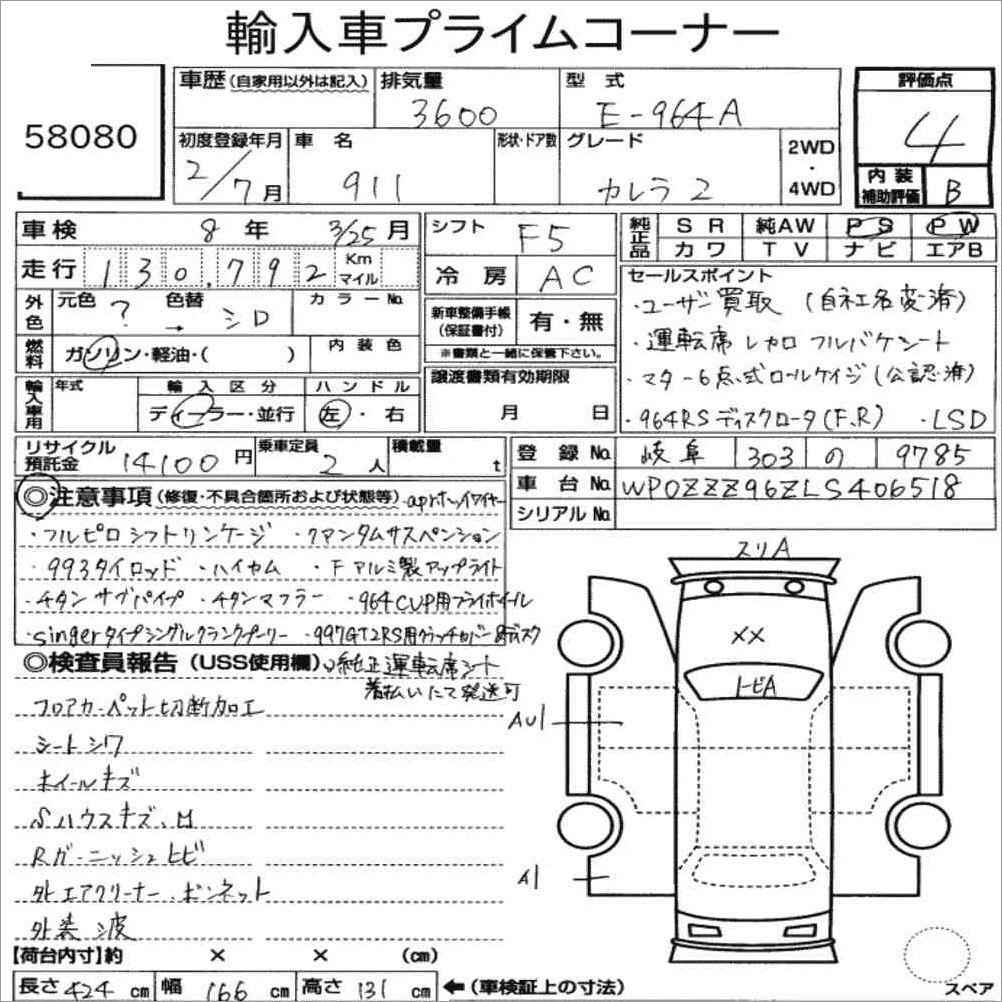 輸入車プライムコーナー
58080
車歴(自家用以外は記入)
排気量
3600
型 式
E-964A
評価点
4
初度登録年月
2/7月
車 名
911
形状・ドア数
グレード
カレラ 2
2WD
・
4WD
内 装
補助評価
B
車検 8 年 3/25 月
走行 130,792 Km マイル
外色 元色 ? 色替 → シロ カラーNo.
燃料 ガソリン・軽油・( ) 内 装 色
輸入車用 年式 輸 入 区 分 ディーラー・並行 ハ ン ド ル 左・右
シフト F5
冷 房 AC
新車整備手帳
(保証書付)
有・無
※書類と一緒に保管下さい。
譲渡書類有効期限
月 日
純正品 S R 純AW P S P W
カ ワ T V ナ ビ エアB
セールスポイント
・ユーザー買取 (自社名変済)
・運転席 レカロ フルバケシート
・マター6点式ロールケイジ(公認済)
・964RSディスクロータ(F.R) ・LSD
リサイクル
預託金
14100 円
乗車定員
2 人
積載量
t
登 録 No. 岐阜 303 の 9785
車 台 No. WP0ZZZ96ZLS406518
シリアル No.
◎注意事項(修復・不具合箇所および状態等)
・フルピロ シフトリンケージ ・クアンタムサスペンション
・993タイロッド ・ハイカム ・Fアルミ製アップライト
・チタン サブパイプ ・チタンマフラー ・964CUP用フライホイール
・singerタイプシングルクランクプーリー ・997GT2RS用クラッチカバー&ディスク
◎検査員報告(USS使用欄)
純正運転席シート
着払いにて発送可
フロアカーペット切断加工
シートシワ
ホイールキズ
Sハウスキズ、H
Rガーニッシュヒビ
外エアクリーナー、ボンネット
外装 波
スリA
XX
トビA
AU1
A1
【荷台内寸】約 × × (cm)
長さ 424 cm 幅 166 cm 高さ 131 cm ←(車検証上の寸法)
スペア